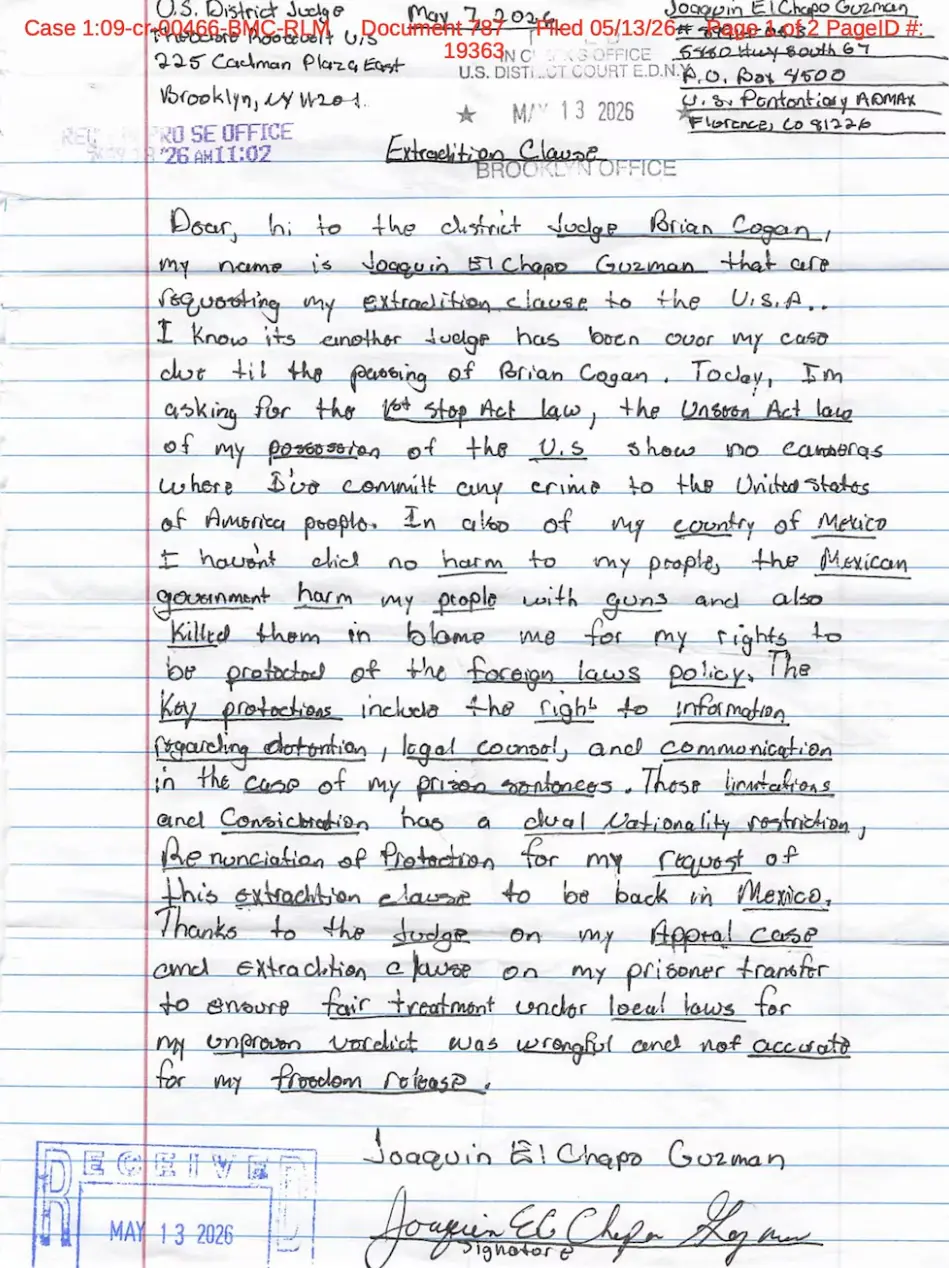 U.S. District Judge
May 7, 2026
Joaquin El Chapo Guzman
Case 1:09-cr-00466-BMC-RLM Document 787 Filed 05/13/26 Page 1 of 2 PageID #:
19363
Theodore Roosevelt U.S
225 Cadman Plaza East
Brooklyn, NY 11201.
IN CLERKS OFFICE
U.S. DISTRICT COURT E.D.N.Y.
★ MAY 13 2026 ★
BROOKLYN OFFICE
5880 Hwy South 67
P.O. Box 8500
U.S. Pentontiary ADMAX
Florence, CO 81226
PRO SE OFFICE
'26 AM11:02
Extradition Clause
Dear, hi to the district Judge Brian Cogan,
my name is Joaquin El Chapo Guzman that are
requesting my extradition clause to the U.S.A..
I know its another Judge has been over my case
due til the passing of Brian Cogan. Today, Im
asking for the 1st Stop Act law, the Unseen Act law
of my possession of the U.S show no cameras
where I've committ any crime to the United States
of America people. In also of my country of Mexico
I haven't did no harm to my people, the Mexican
government harm my people with guns and also
killed them in blame me for my rights to
be protected of the foreign laws policy. The
Key protections include the right to information
regarding detention, legal counsel, and communication
in the case of my prison sentences. Those limitations
and Consideration has a dual Nationality restriction,
Renunciation of Protection for my request of
this extradition clause to be back in Mexico.
Thanks to the Judge on my Appeal case
and extradition clause on my prisoner transfer
to ensure fair treatment under local laws for
my unproven verdict was wrongful and not accurate
for my freedom release.
Joaquin El Chapo Guzman
Joaquin El Chapo Guzman
Signature
RECEIVED
MAY 13 2026